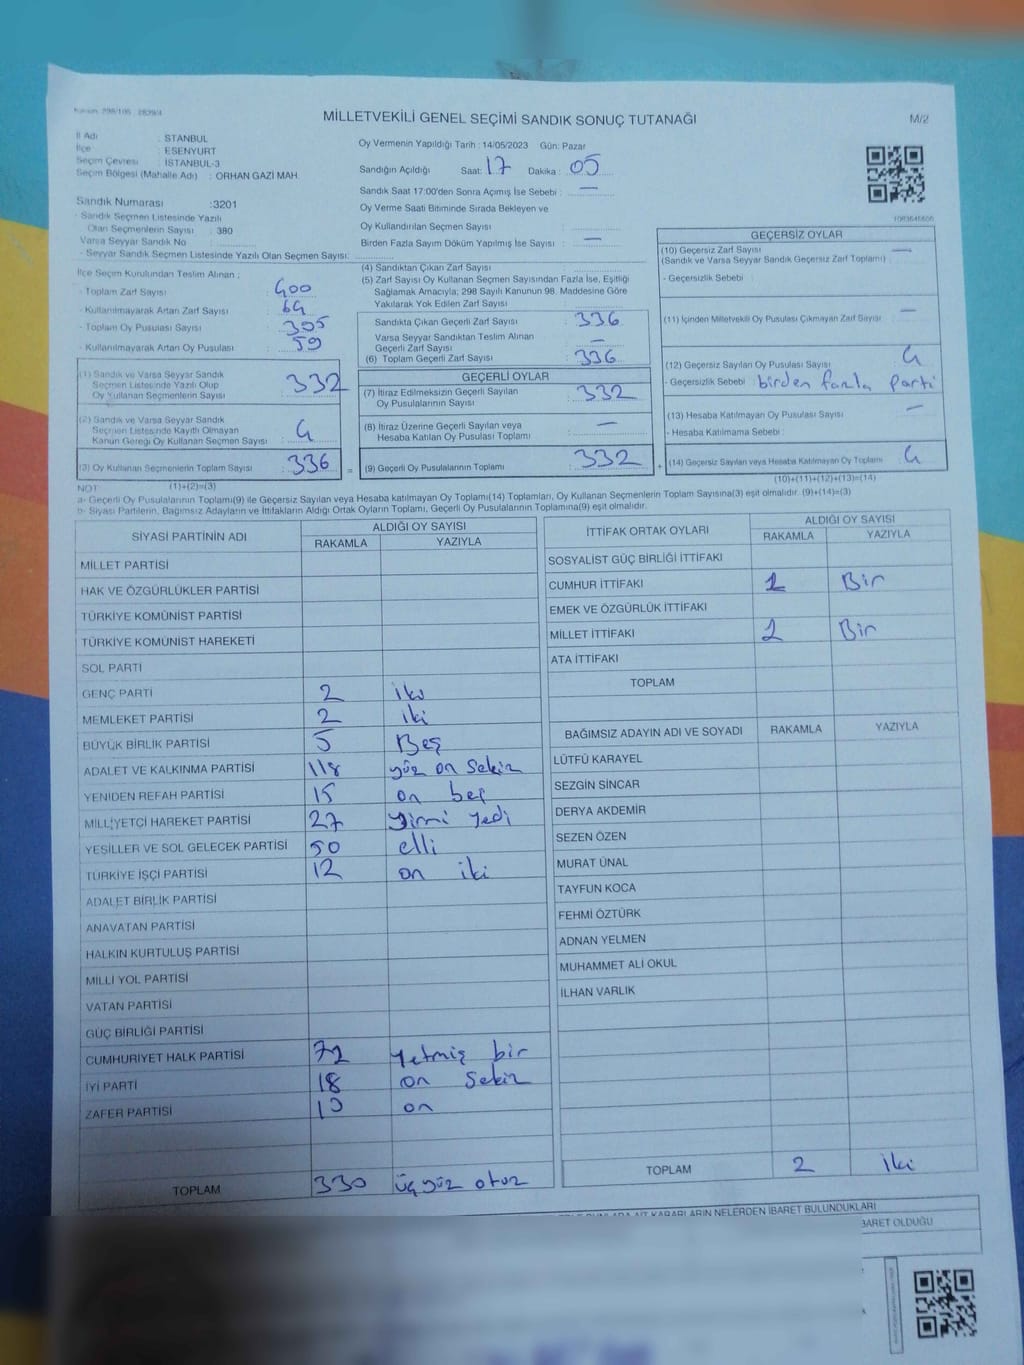 MİLLETVEKİLİ GENEL SEÇİMİ SANDIK SONUÇ TUTANAĞI
M/2
İl Adı : STANBUL
İlçe : ESENYURT
Seçim Çevresi : İSTANBUL-3
Seçim Bölgesi (Mahalle Adı) : ORHAN GAZİ MAH.
Sandık Numarası :3201
- Sandık Seçmen Listesinde Yazılı
Olan Seçmenlerin Sayısı : 380
Varsa Seyyar Sandık No :
- Seyyar Sandık Seçmen Listesinde Yazılı Olan Seçmen Sayısı:
Oy Vermenin Yapıldığı Tarih : 14/05/2023 Gün: Pazar
Sandığın Açıldığı Saat: 17 Dakika : 05
Sandık Saat 17:00'den Sonra Açımış İse Sebebi : —
Oy Verme Saati Bitiminde Sırada Bekleyen ve
Oy Kullandırılan Seçmen Sayısı :
Birden Fazla Sayım Döküm Yapılmış İse Sayısı : —
İlçe Seçim Kurulundan Teslim Alınan ;
- Toplam Zarf Sayısı : 400
- Kullanılmayarak Artan Zarf Sayısı : 64
- Toplam Oy Pusulası Sayısı : 395
- Kullanılmayarak Artan Oy Pusulası : 59
(1) Sandık ve Varsa Seyyar Sandık
Seçmen Listesinde Yazılı Olup
Oy Kullanan Seçmenlerin Sayısı : 332
(2) Sandık ve Varsa Seyyar Sandık
Seçmen Listesinde Kayıtlı Olmayan
Kanun Gereği Oy Kullanan Seçmen Sayısı : 4
(3) Oy Kullanan Seçmenlerin Toplam Sayısı : 336
(4) Sandıktan Çıkan Zarf Sayısı :
(5) Zarf Sayısı Oy Kullanan Seçmen Sayısından Fazla İse, Eşitliği
Sağlamak Amacıyla; 298 Sayılı Kanunun 98. Maddesine Göre
Yakılarak Yok Edilen Zarf Sayısı :
Sandıkta Çıkan Geçerli Zarf Sayısı : 336
Varsa Seyyar Sandıktan Teslim Alınan
Geçerli Zarf Sayısı : —
(6) Toplam Geçerli Zarf Sayısı : 336
GEÇERLİ OYLAR
(7) İtiraz Edilmeksizin Geçerli Sayılan
Oy Pusulalarının Sayısı : 332
(8) İtiraz Üzerine Geçerli Sayılan veya
Hesaba Katılan Oy Pusulası Toplamı : —
= (9) Geçerli Oy Pusulalarının Toplamı : 332
GEÇERSİZ OYLAR
(10) Geçersiz Zarf Sayısı : —
(Sandık ve Varsa Seyyar Sandık Geçersiz Zarf Toplamı)
- Geçersizlik Sebebi :
(11) İçinden Milletvekili Oy Pusulası Çıkmayan Zarf Sayısı : —
(12) Geçersiz Sayılan Oy Pusulası Sayısı : 4
- Geçersizlik Sebebi : birden fazla parti
(13) Hesaba Katılmayan Oy Pusulası Sayısı : —
- Hesaba Katılmama Sebebi :
+ (14) Geçersiz Sayılan veya Hesaba Katılmayan Oy Toplamı : 4
NOT : (1)+(2)=(3)
(10)+(11)+(12)+(13)=(14)
a- Geçerli Oy Pusulalarının Toplamı(9) ile Geçersiz Sayılan veya Hesaba katılmayan Oy Toplamı(14) Toplamları, Oy Kullanan Seçmenlerin Toplam Sayısına(3) eşit olmalıdır. (9)+(14)=(3)
b- Siyasi Partilerin, Bağımsız Adayların ve İttifakların Aldığı Ortak Oyların Toplamı, Geçerli Oy Pusulalarının Toplamına(9) eşit olmalıdır.
SİYASİ PARTİNİN ADI ALDIĞI OY SAYISI
RAKAMLA YAZIYLA
MİLLET PARTİSİ
HAK VE ÖZGÜRLÜKLER PARTİSİ
TÜRKİYE KOMÜNİST PARTİSİ
TÜRKİYE KOMÜNİST HAREKETİ
SOL PARTİ
GENÇ PARTİ 2 iki
MEMLEKET PARTİSİ 2 iki
BÜYÜK BİRLİK PARTİSİ 5 Beş
ADALET VE KALKINMA PARTİSİ 118 yüz on sekiz
YENİDEN REFAH PARTİSİ 15 on beş
MİLLİYETÇİ HAREKET PARTİSİ 27 yirmi yedi
YEŞİLLER VE SOL GELECEK PARTİSİ 50 elli
TÜRKİYE İŞÇİ PARTİSİ 12 on iki
ADALET BİRLİK PARTİSİ
ANAVATAN PARTİSİ
HALKIN KURTULUŞ PARTİSİ
MİLLİ YOL PARTİSİ
VATAN PARTİSİ
GÜÇ BİRLİĞİ PARTİSİ
CUMHURİYET HALK PARTİSİ 71 yetmiş bir
İYİ PARTİ 18 on sekiz
ZAFER PARTİSİ 10 on
TOPLAM 330 üçyüz otuz
İTTİFAK ORTAK OYLARI ALDIĞI OY SAYISI
RAKAMLA YAZIYLA
SOSYALİST GÜÇ BİRLİĞİ İTTİFAKI
CUMHUR İTTİFAKI 1 Bir
EMEK VE ÖZGÜRLÜK İTTİFAKI
MİLLET İTTİFAKI 1 Bir
ATA İTTİFAKI
TOPLAM
BAĞIMSIZ ADAYIN ADI VE SOYADI RAKAMLA YAZIYLA
LÜTFÜ KARAYEL
SEZGİN SİNCAR
DERYA AKDEMİR
SEZEN ÖZEN
MURAT ÜNAL
TAYFUN KOCA
FEHMİ ÖZTÜRK
ADNAN YELMEN
MUHAMMET ALİ OKUL
İLHAN VARLIK
TOPLAM 2 iki
KARARLARIN NELERDEN İBARET BULUNDUKLARI
BARET OLDUĞU